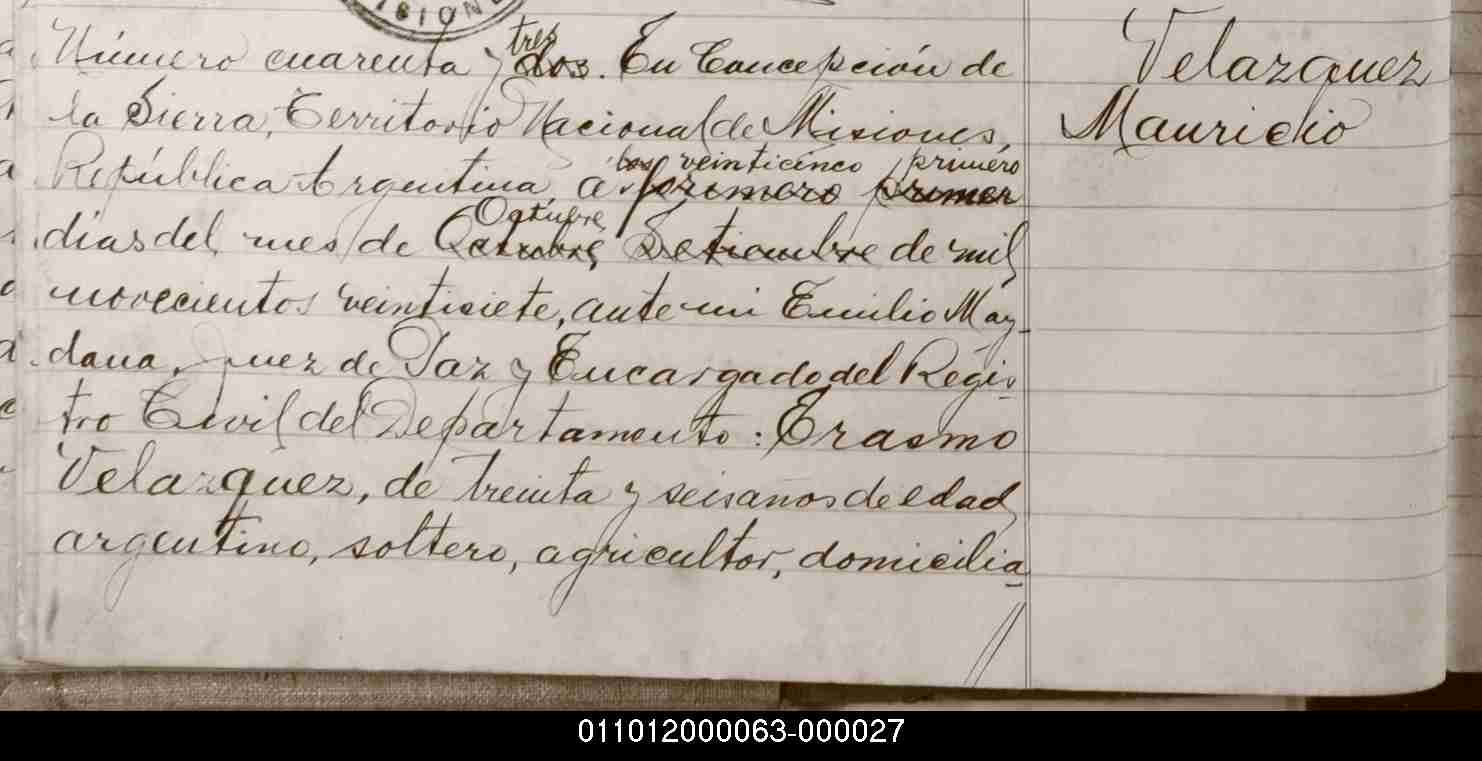 ISIONE
Número cuarenta y tres dos. En Concepción de
la Sierra, Territorio Nacional de Misiones,
los veinticinco primero
República Argentina a primero primer
Octubre
dias del mes de Setiembre de mil
novecientos veintisiete, ante mi Emilio May-
dana, Juez de Paz y Encargado del Regis-
tro Civil del Departamento: Erasmo
Velazquez, de treinta y seis años de edad
argentino, soltero, agricultor, domicilia-
Velazquez
Mauricio
011012000063-000027